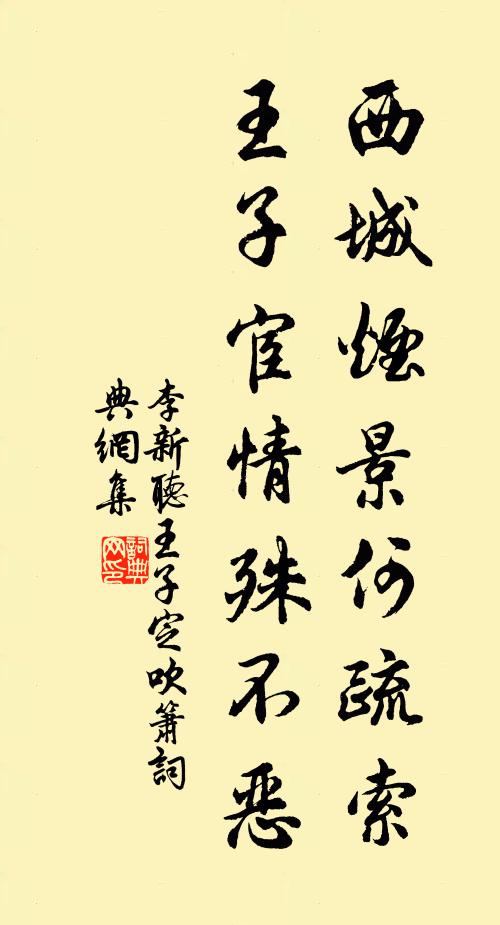 西城煙景何疏索
王子宦情殊不惡
李新聽王子定吹簫詞
典網集
詞典
网印